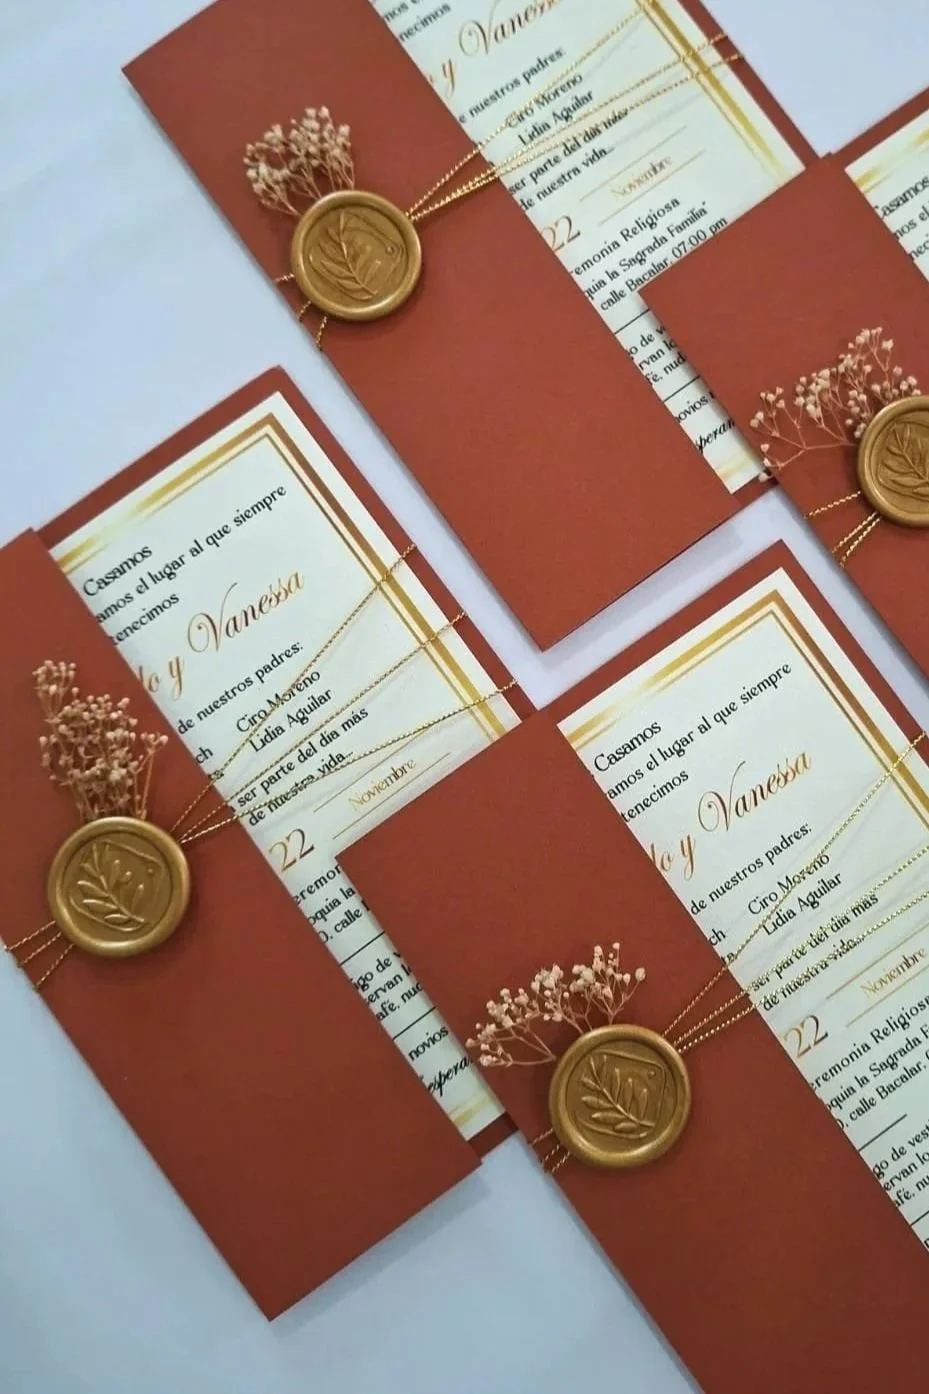 Casamos
amos el lugar al que siempre
tenecimos
to y Vanessa
de nuestros padres:
ch Ciro Moreno
ta Lidia Aguilar
ser parte del dia más
de nuestra vida...
22 Noviembre
eremonia Religiosa
oquia la Sagrada Familia"
O. calle Bacalar,
igo de vesti
ervan lo
afé, nud
novios
espera
Casamos
amos el lugar al que siempre
tenecimos
to y Vanessa
de nuestros padres:
ch Ciro Moreno
Lidia Aguilar
ser parte del dia más
de nuestra vida...
22 Noviembre
eremon
oquia la
O. calle
igo de v
ervan l
afé, nud
novios
espera
necimos
y Vanessa
e nuestros padres:
Ciro Moreno
Lidia Aguilar
ser parte del dia más
de nuestra vida...
22 Noviembre
emonia Religiosa
quia la Sagrada Familia"
calle Bacalar, 07:00 pm
o de v
rvan lo
fé, nud
ovios
speran
Casamos
nos el